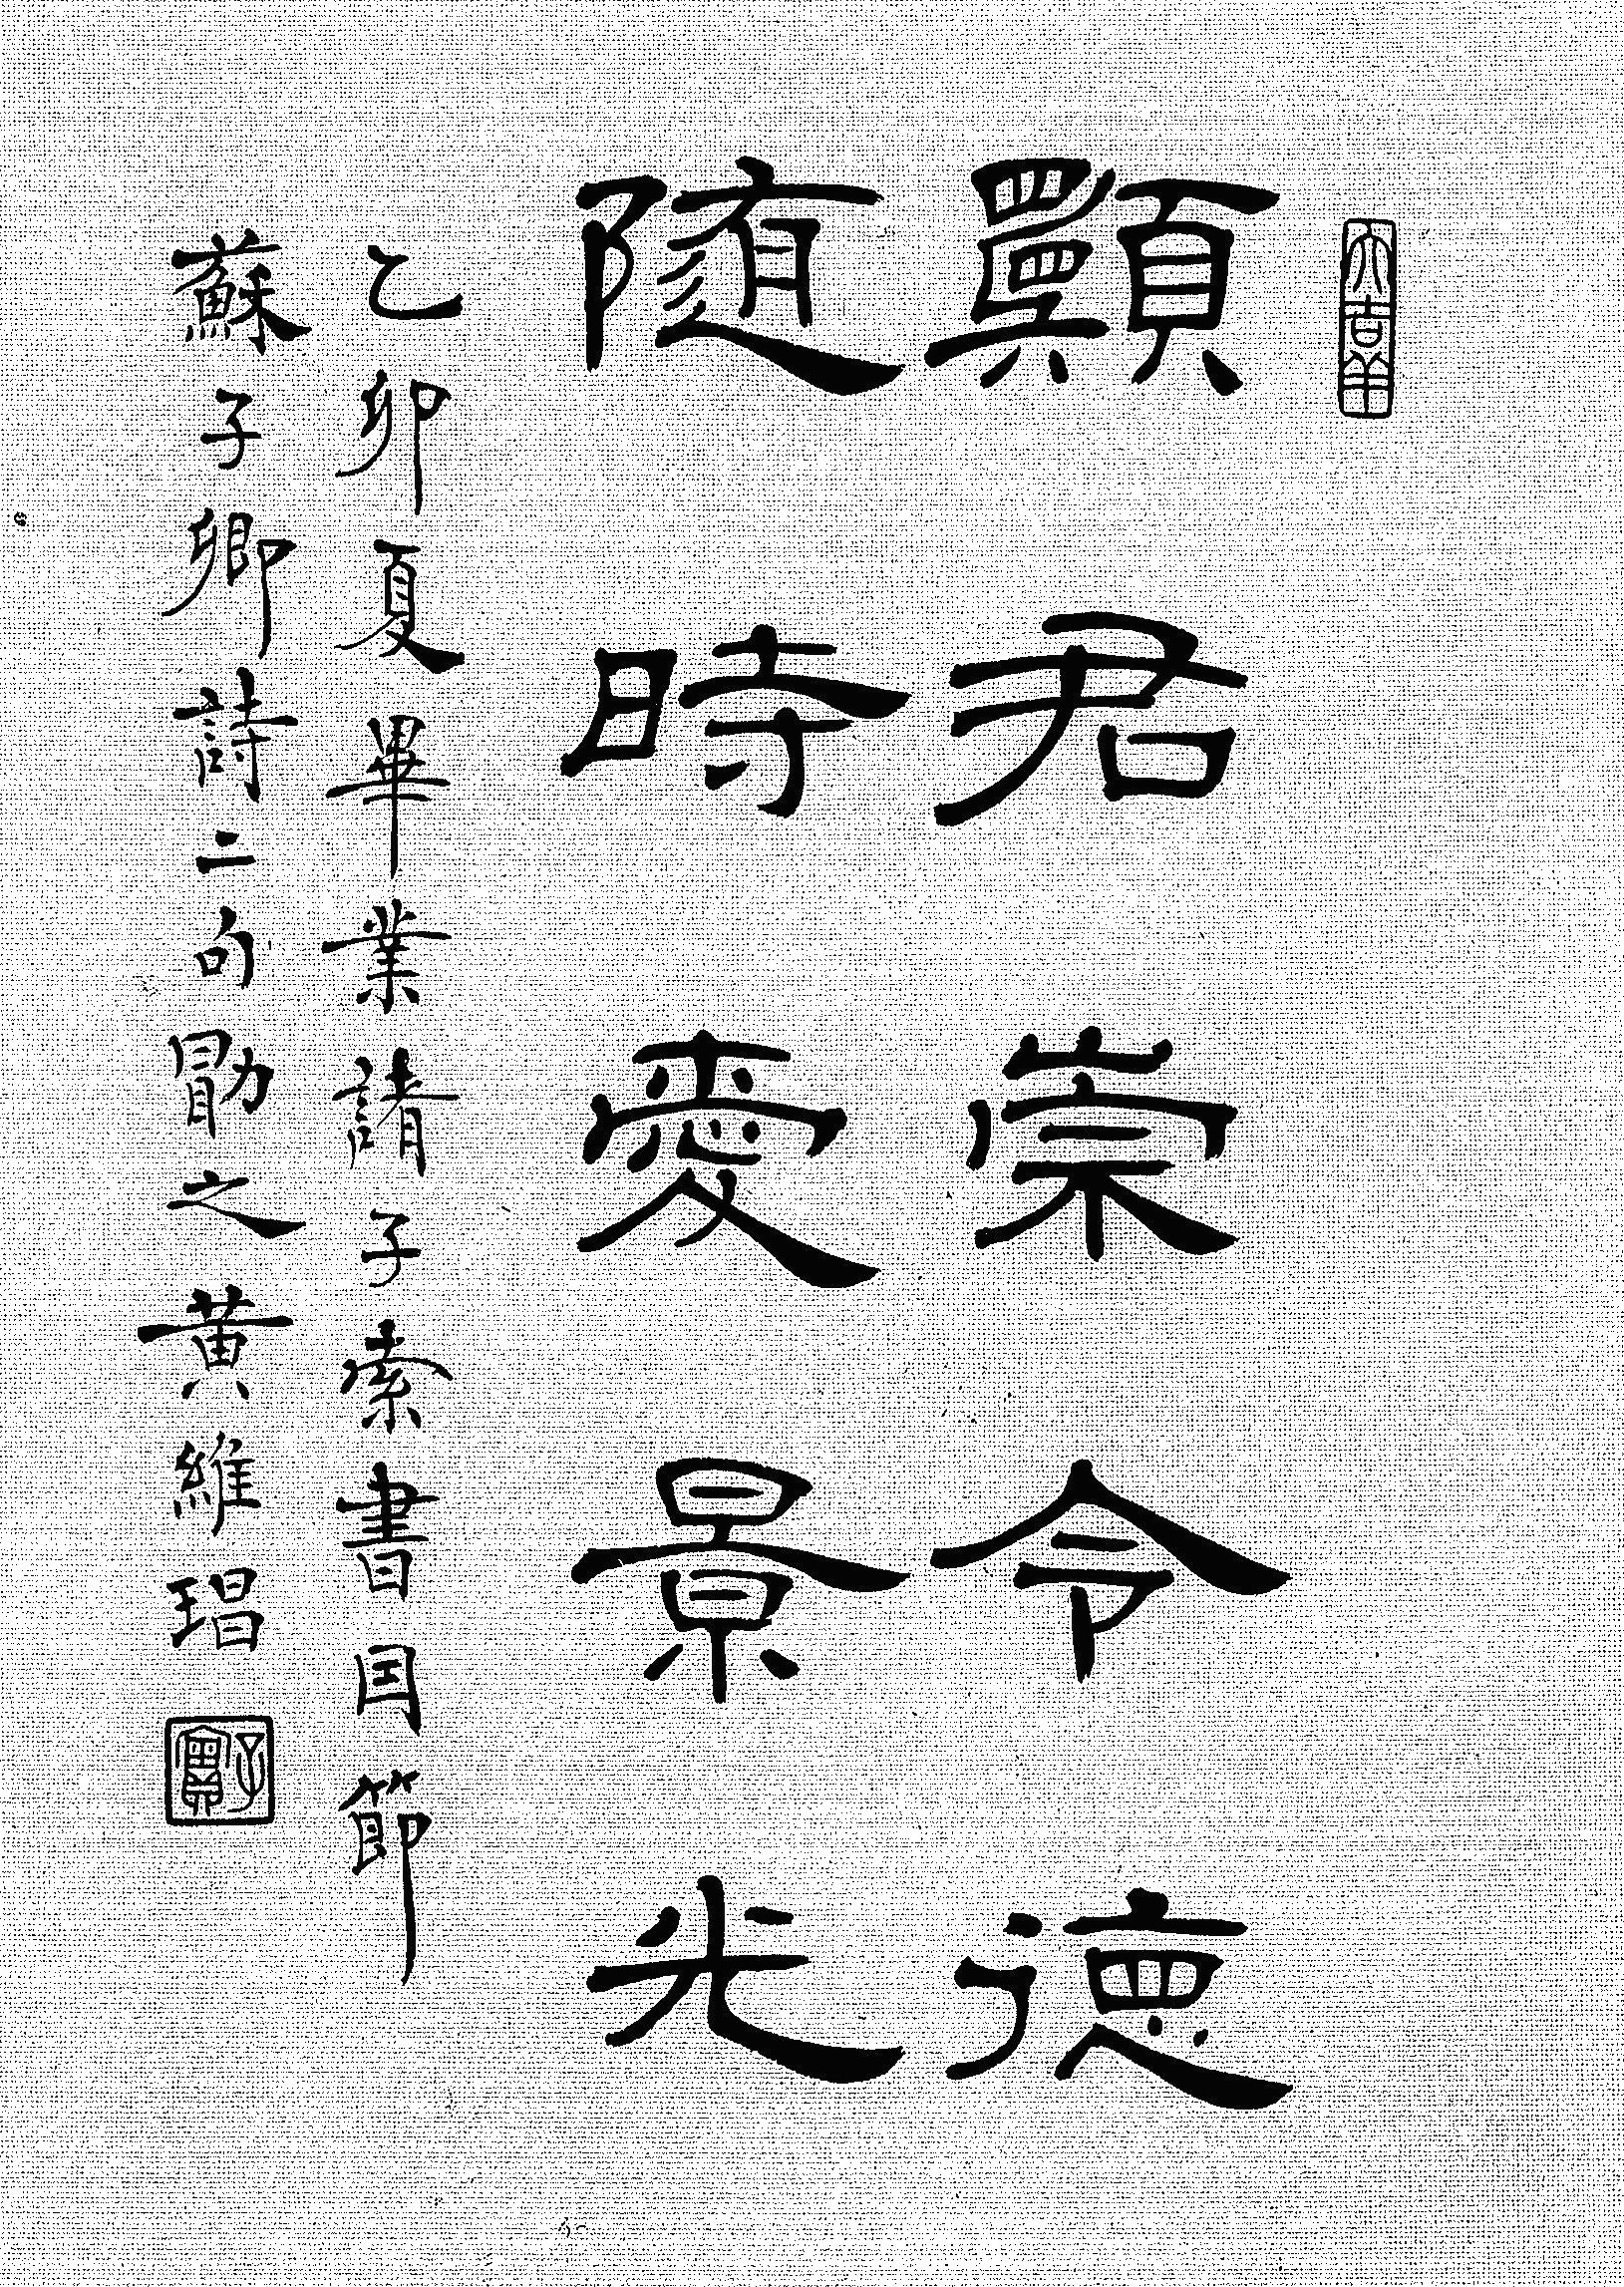 大吉羊
顠君崇令德
随時愛景光
乙卯夏畢業諸子索書因節
蘇子卿詩二句勖之黃維琩